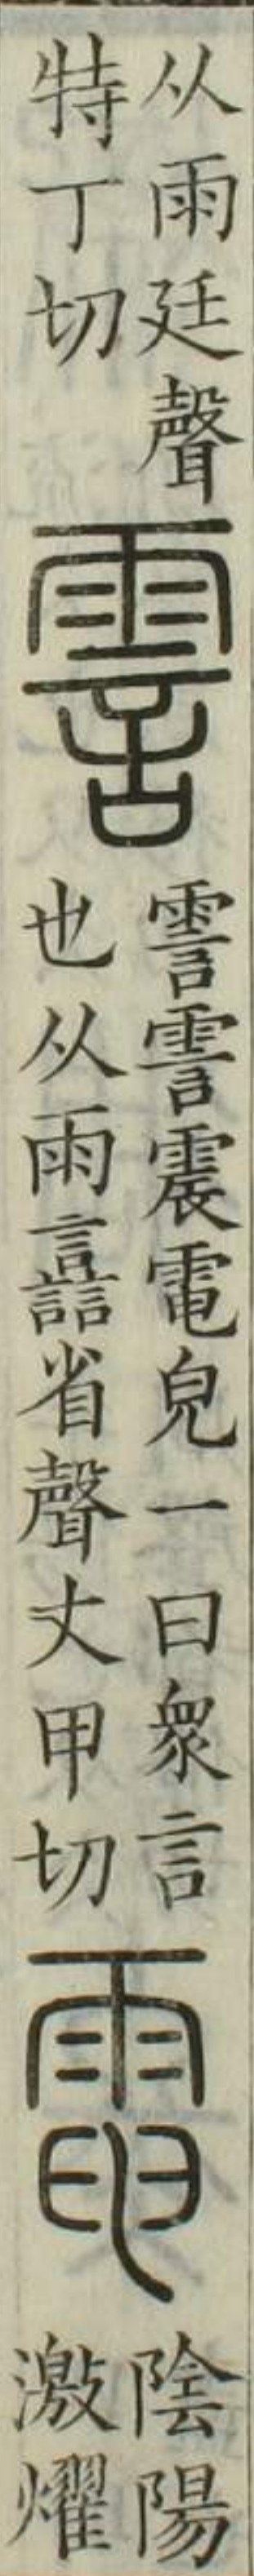 从雨廷聲
特丁切
䨓
䨓䨓震電皃一曰衆言
也从雨譶省聲丈甲切
電
陰陽
激燿